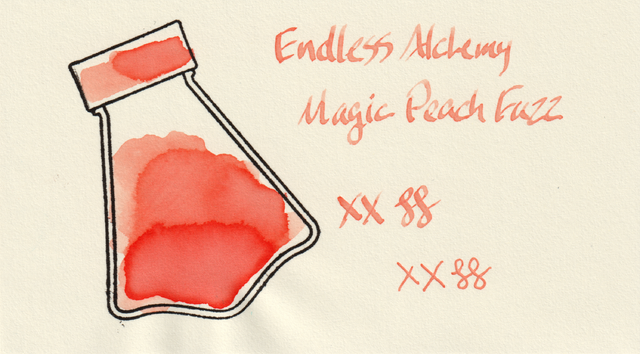 Endless Alchemy
Magic Peach Fuzz
xx 88
xx 88